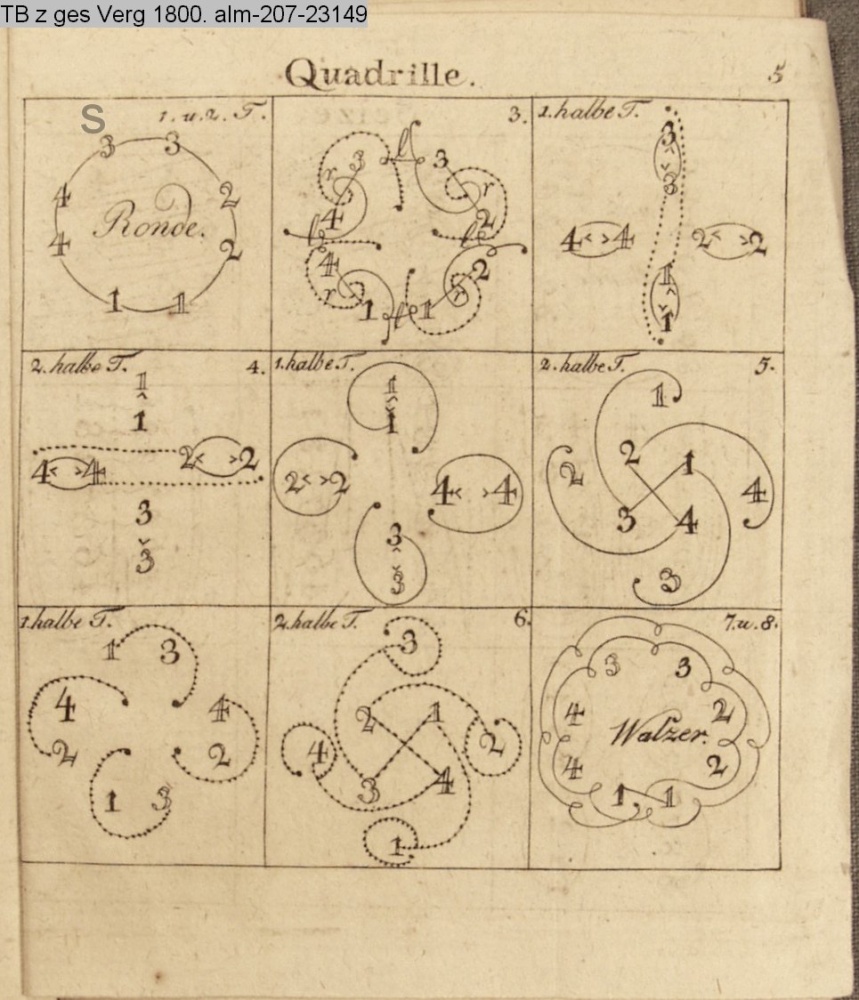 TB z ges Verg 1800. alm-207-23149
Quadrille. 5
S 1. u. 2. T.
3 3
4 2
Ronde.
4 2
1 1
3.
3 l 3
r r
4 2
l l
4 2
r r
1 l 1
1. halbe T.
3
3
4 4 2 2
1
1
2. halbe T. 4.
1
1
4 4 2 2
3
3
1. halbe T.
1
1
2 2 4 4
3
3
2. halbe T. 5.
1
2 1
2 4
3 4
3
1. halbe T.
1 3
4 4
2 2
1 3
2. halbe T. 6.
3
2 1
4 2
3 4
1
7. u. 8.
3 3
4 2
Walzer.
4 2
1 1